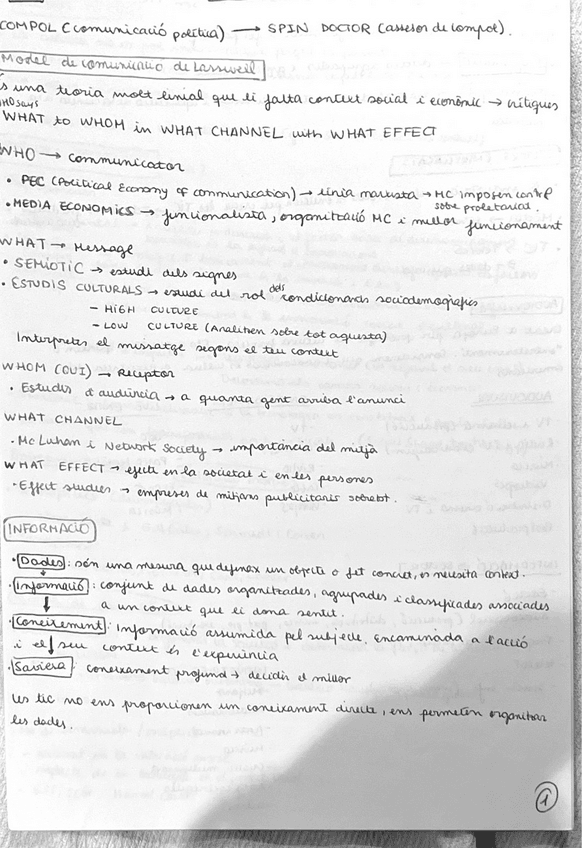 COMPOL (comunicació política) → SPIN DOCTOR (assesor de compol).
Model de comunicació de Lasswell
És una teoria molt linial que li falta context social i econòmic → crítiques
WHO says
WHAT to WHOM in WHAT CHANNEL with WHAT EFFECT
WHO → communicator
• PEC (Political Economy of communication) → línia marxista → MC imposen control
sobre proletariat.
• MEDIA ECONOMICS → funcionalista, organització MC i millor funcionament
WHAT → Message
• SEMIOTIC → estudi dels signes
• ESTUDIS CULTURALS → estudi del rol dels condicionants sociodemogràfics
– HIGH CULTURE
– LOW CULTURE (Analitzen sobre tot aquesta)
Interpretes el missatge segons el teu context
WHOM (QUI) → Receptor
• Estudis d'audiència → a quanta gent arriba l'anunci
WHAT CHANNEL
• Mc Luhan i Network Society → importància del mitjà
WHAT EFFECT → efecte en la societat i en les persones
• Effect studies → empreses de mitjans publicitaris sobretot.
INFORMACIÓ
• Dades: són una mesura que defineix un objecte o fet concret, es necesita context.
↓
• Informació: conjunt de dades organitzades, agrupades i classificades associades
↓ a un context que li dona sentit.
• Coneixement: Informació assumida pel subjecte, encaminada a l'acció
i el ↓ seu context és l'experiència
• Saviesa coneixament profund → decidir el millor
Les tic no ens proporcionen un coneixament directe, ens permeten organitzar
les dades.
1